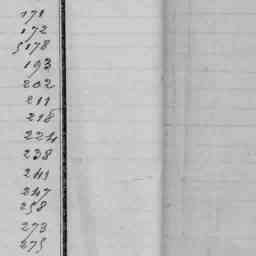 171
172
§178
193
202
211
218
224
238
241
247
258
273
275